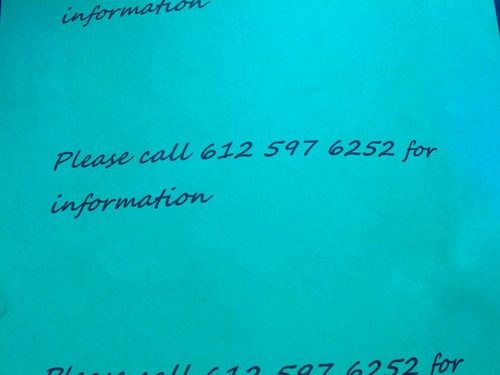 information
Please call 612 597 6252 for
information
Please call 612 597 6252 for